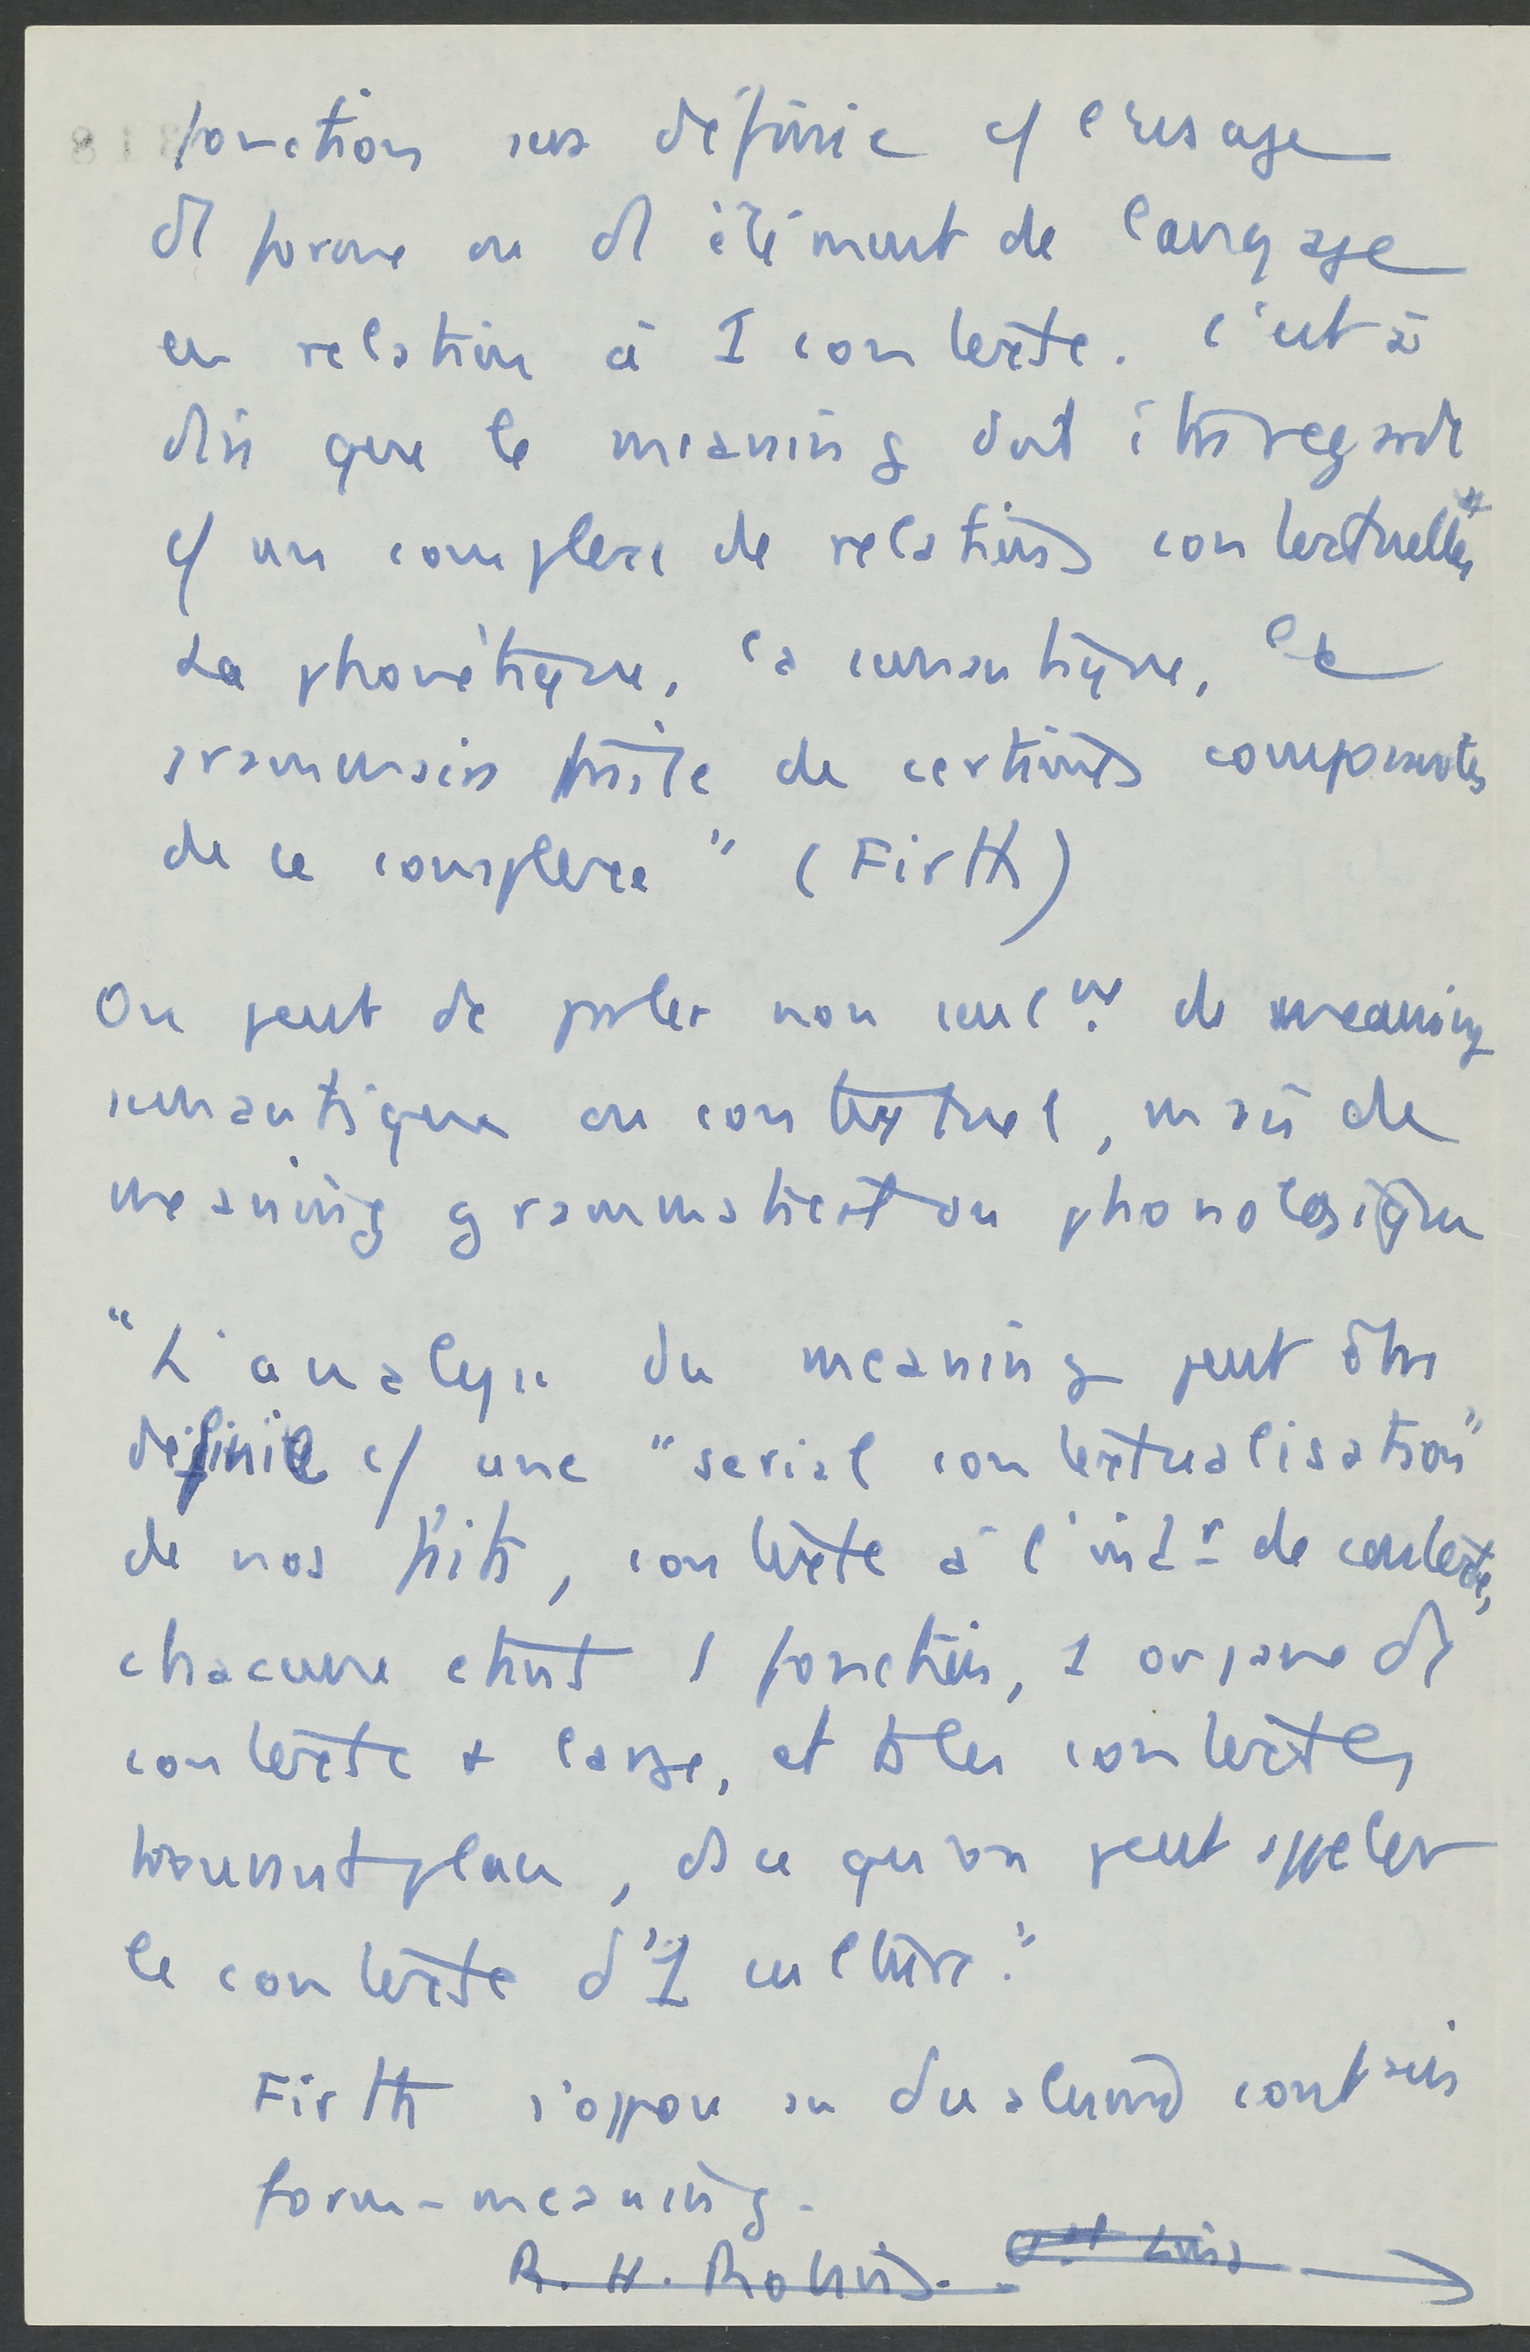 fonction sera définie c/ l'usage
ds forme ou ds élément de langage
en relation à 1 contexte. C'est à
dire que le meaning doit être regardé
c/ un complexe de relations contextuelles"
La phonétique, la sémantique, la
grammaire traite de certaines composantes
de ce complexe" (Firth)
On peut dc parler non seulnt de meaning
sémantique ou contextuel, mais de
meaning grammatical ou phonologique
"L'analyse du meaning peut être
définie c/ une "serial contextualisation"
de nos faits, contexte à l'intr de contexte,
chacune étant 1 fonction, 1 organe ds
contexte + large, et ts les contextes
trouvant place, ds ce qu'on peut appeler
le contexte d'1 culture."
Firth s'oppose au dualisme
form-meaning.
R. H. Robins.